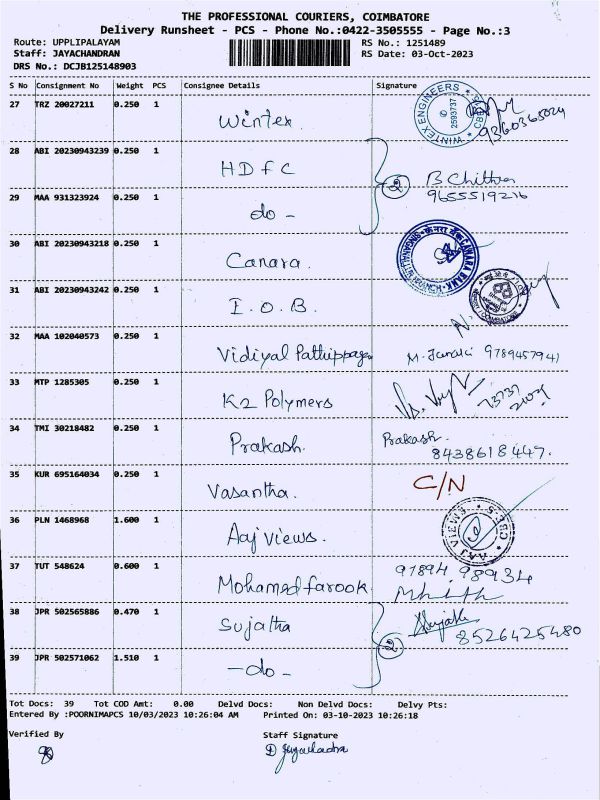 THE PROFESSIONAL COURIERS, COIMBATORE
Delivery Runsheet - PCS - Phone No.:0422-3505555 - Page No.:3
Route: UPPLIPALAYAM RS No.: 1251489
Staff: JAYACHANDRAN RS Date: 03-Oct-2023
DRS No.: DCJB125148903
S No Consignment No Weight PCS Consignee Details Signature
27 TRZ 20027211 0.250 1 Wintex. WINTEX ENGINEERS 2593737 9360365024
28 ABI 20230943239 0.250 1 HDFC 2 B Chithra
9655519216
29 MAA 931323924 0.250 1 do -
30 ABI 20230943218 0.250 1 Canara. CANARA BANK
31 ABI 20230943242 0.250 1 I.O.B.
32 MAA 102040573 0.250 1 Vidiyal Pathippagam M. Janaki 9789457941
33 MTP 1285305 0.250 1 K2 Polymers
34 TMI 30218482 0.250 1 Prakash. Prakash.
8438618447.
35 KUR 695164034 0.250 1 Vasantha. C/N
36 PLN 1468968 1.600 1 Aaj Views. AAJ VIEWS
37 TUT 548624 0.600 1 Mohamed farook. 97894 98934
38 JPR 502565886 0.470 1 Sujatha 2 Sujatha
8526425480
39 JPR 502571062 1.510 1 -do-
Tot Docs: 39 Tot COD Amt: 0.00 Delvd Docs: Non Delvd Docs: Delvy Pts:
Entered By :POORNIMAPCS 10/03/2023 10:26:04 AM Printed On: 03-10-2023 10:26:18
Verified By Staff Signature